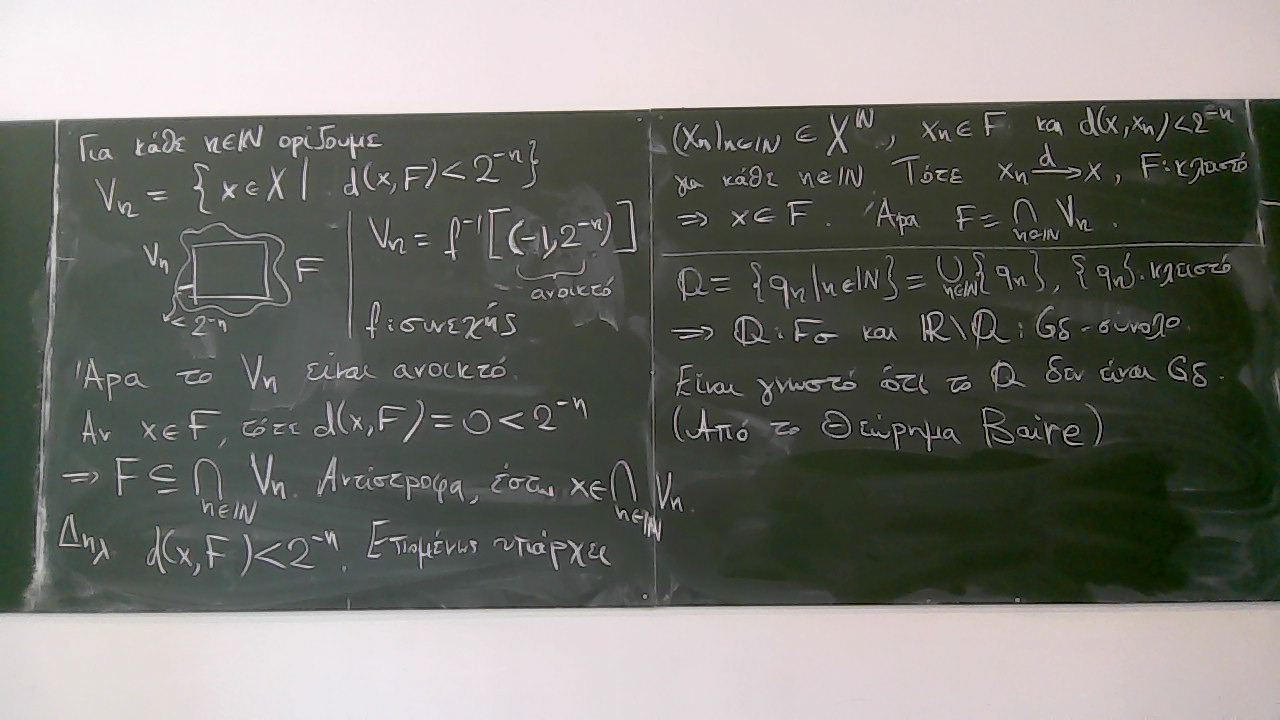 Για κάθε n∈ℕ ορίζουμε
Vₙ = { x∈X | d(x,F) < 2⁻ⁿ }
Vₙ
F
< 2⁻ⁿ
Vₙ = f⁻¹[(-1,2⁻ⁿ)]
ανοικτό
f: συνεχής
Άρα το Vₙ είναι ανοικτό.
Αν x∈F, τότε d(x,F) = 0 < 2⁻ⁿ
⇒ F ⊆ ⋂_{n∈ℕ} Vₙ. Αντίστροφα, έστω x∈⋂_{n∈ℕ} Vₙ.
Δηλ d(x,F) < 2⁻ⁿ. Επομένως υπάρχει
(xₙ)ₙ∈ℕ ∈ X^ℕ, xₙ∈F και d(x,xₙ) < 2⁻ⁿ
για κάθε n∈ℕ Τότε xₙ →^d x, F: κλειστό
⇒ x∈F. Άρα F = ⋂_{n∈ℕ} Vₙ.
ℚ = {qₙ | n∈ℕ} = ⋃_{n∈ℕ} {qₙ}, {qₙ}: κλειστό
⇒ ℚ: Fσ και ℝ\ℚ: Gδ-σύνολο.
Είναι γνωστό ότι το ℚ δεν είναι Gδ.
(Από το Θεώρημα Baire)